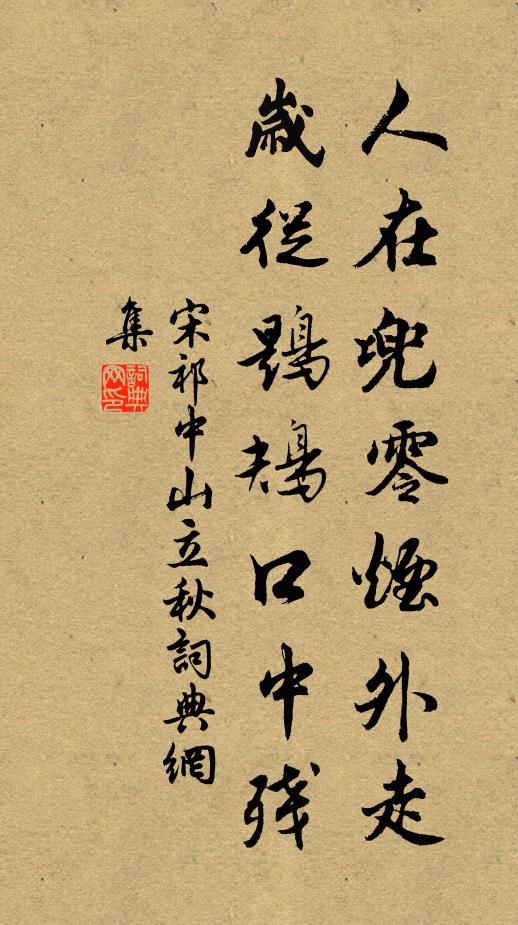 人在兜零煙外走
歲從鶗鴂口中残
宋祁中山立秋詞典網
集
詞典网印